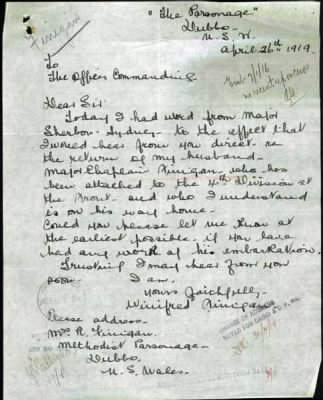 Finigan
"The Parsonage"
Dubbo
N.S.W.
April 26th 1919.
To
The Officer Commanding
Dear Sir
Today I had word from Major
Sherbon - Sydney - to the effect that
I would hear from you direct - re
the return of my husband -
Major Chaplain Finigan, who has
been attached to the 4th Division at
the Front - and who I understand
is on his way home.
Could you please let me know at
the earliest possible, if you have
had any word of his embarkation.
Trusting I may hear from you
soon -
I am,
Yours faithfully,
Winifred Finigan
Please address -
Mrs R. Finigan.
Methodist Parsonage -
Dubbo
N.S. Wales.
CHANGE OF ADDRESS
NOTED FOR CARDS